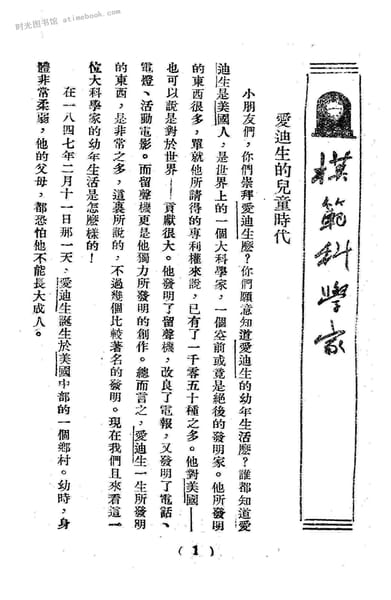 时光图书馆 - atimebook.com
模範科學家
愛迪生的兒童時代
小朋友們，你們崇拜愛迪生麼？你們願意知道愛迪生的幼年生活麼？誰都知道愛
迪生是美國人，是世界上的一個大科學家，一個空前或竟是絕後的發明家。他所發明
的東西很多，單就他所請得的專利權來說，已有了一千零五十種之多。他對美國——
也可以說是對於世界——貢獻很大。他發明了留聲機，改良了電報，又發明了電話、
電燈、活動電影。而留聲機更是他獨力所發明的創作。總而言之，愛迪生一生所發明
的東西，是非常之多，這裏所說的，不過幾個比較著名的發明。現在我們且來看這一
位大科學家的幼年生活是怎麼樣的！
在一八四七年二月十一日那一天，愛迪生誕生於美國中部的一個鄉村。幼時，身
體非常柔弱，他的父母，都恐怕他不能長大成人。
(1)